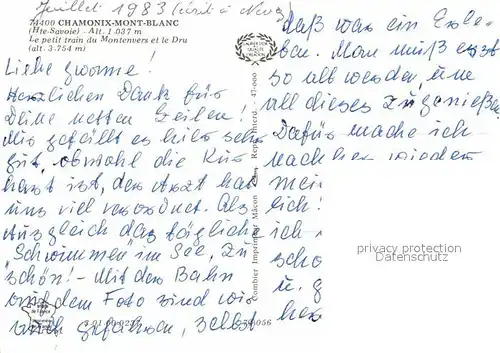 Juillet 1983 (écrit à
74400 CHAMONIX-MONT-BLANC
(Hte-Savoie) - Alt. 1.037 m
Le petit train du Montenvers et le Dru
(alt. 3.754 m)
Liebe Yvonne!
Herzlichen Dank für
Deine netten Zeilen!
Mir gefällt es hier sehr
gut, obwohl die Kur
hart ist, der Arzt hat
uns viel verordnet. Als
Ausgleich das tägliche
"Schwimmen" im See, zu
schön! - Mit der Bahn
auf dem Foto sind wir
auch gefahren, selbst
daß war ein Erle-
ben. Man muß erst
so alt werden, um
all dieses zu genießen
Dafür mache ich
nachher wieder
mei
lich!
ich
scho
u. g
her
Combier Imprimeur Mâcon
Repr. Interd.
47-000
privacy protection
SAMMLER.COM